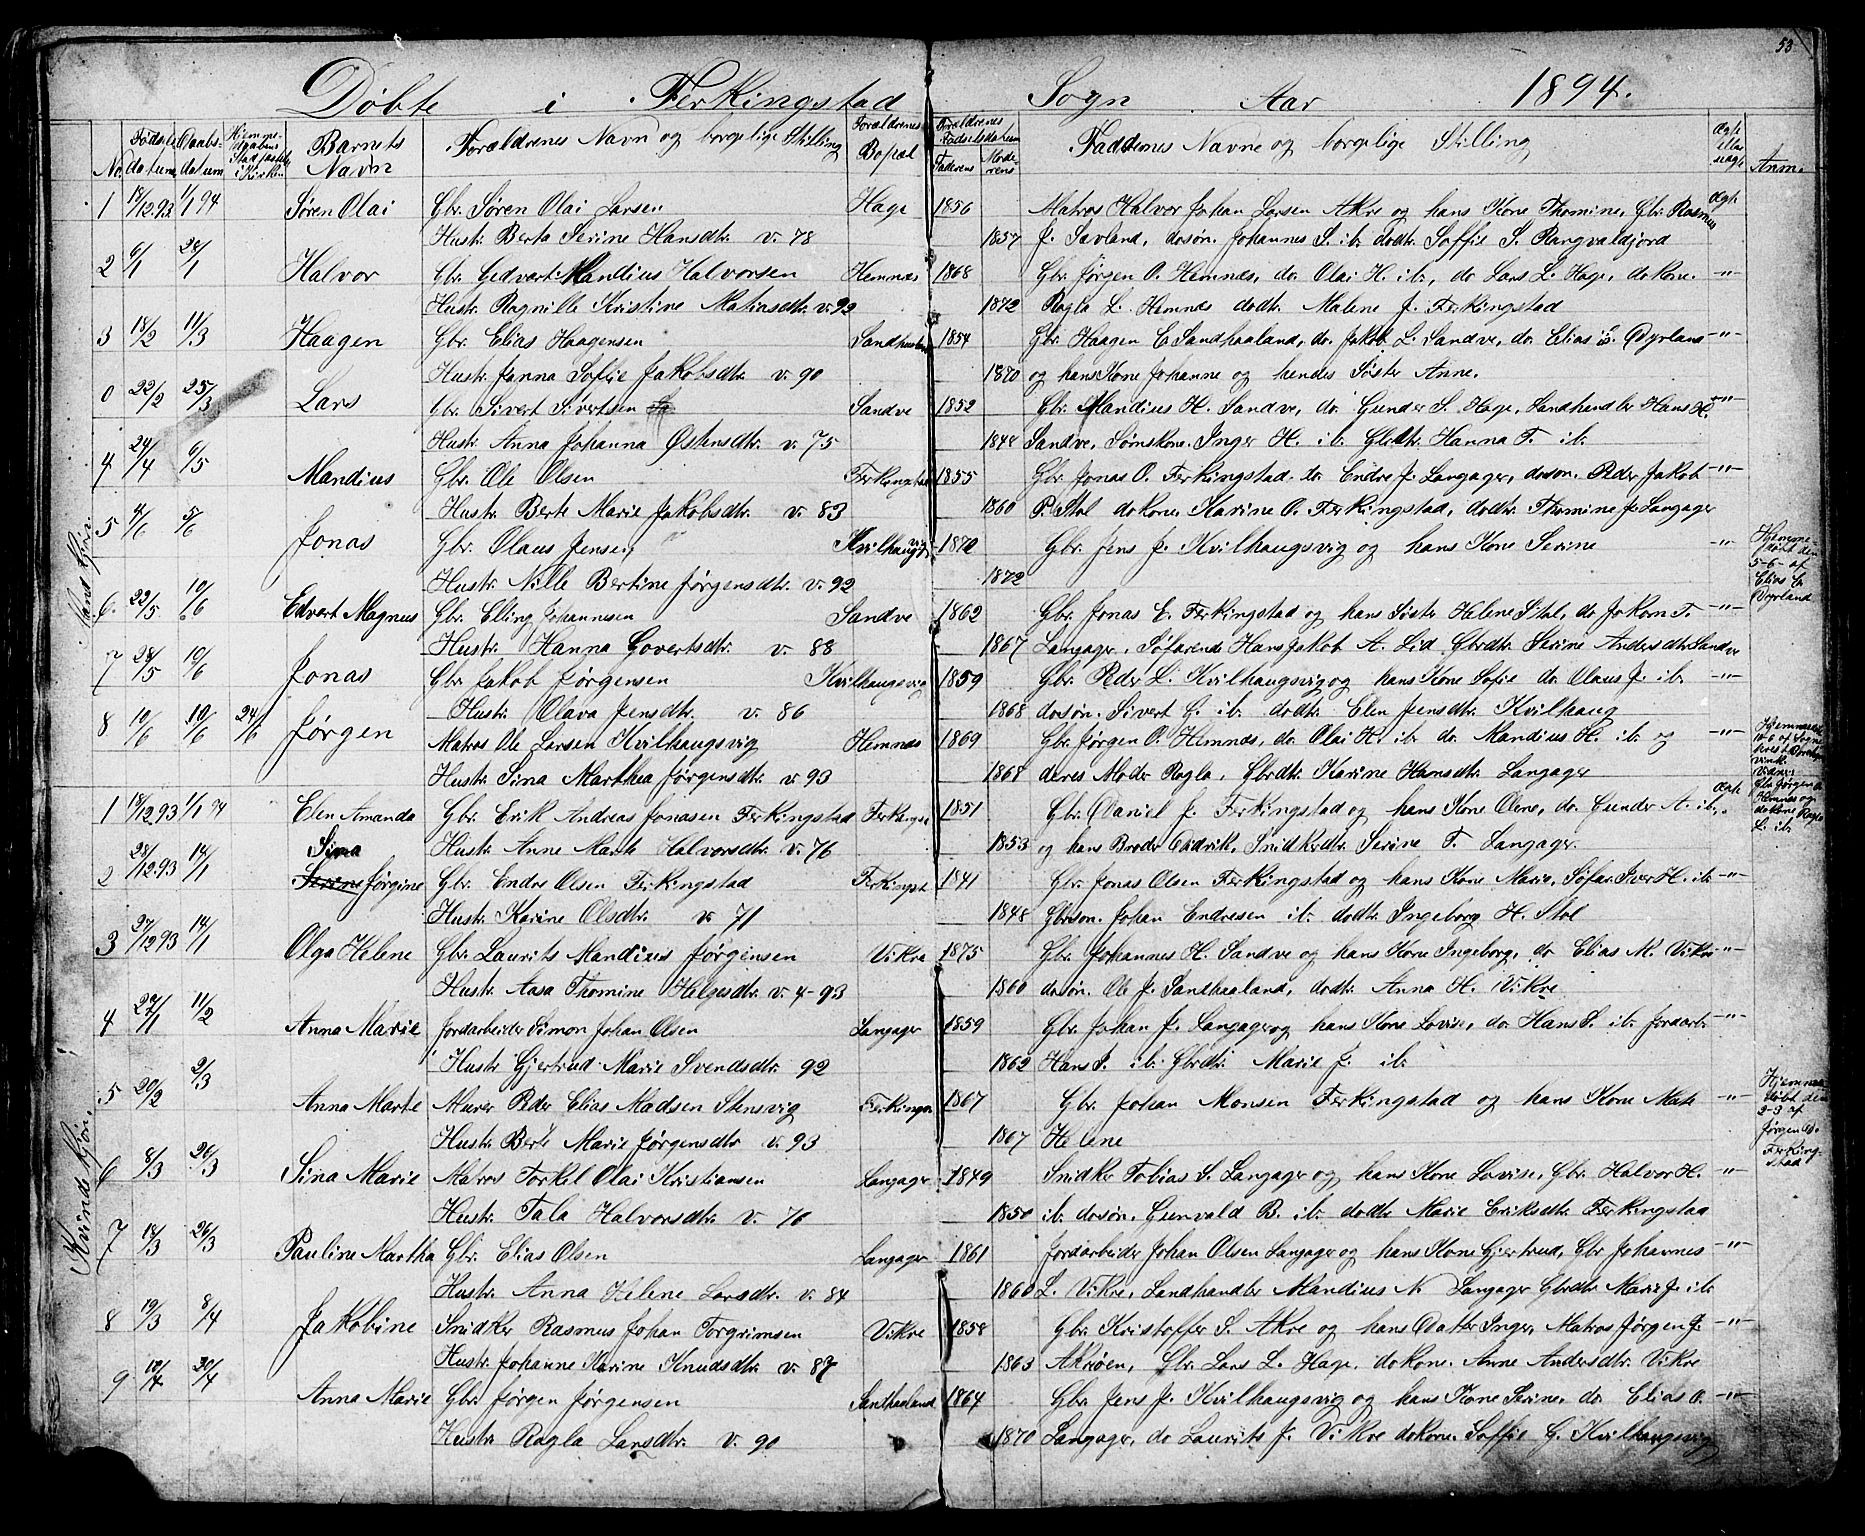 53
Døbte i Ferkingstad Sogn Aar 1894.
No. Fødsels datum Daabs- datum Hjemme- daabens Stadfæstelse i Kirken Barnets Navn Forældrenes Navn og borgelige Stilling Forældrenes Bopæl Forældrenes Fødselsdatum Faderens Moderens Faddernes Navne og borgelige Stilling Ægte eller uægte Anm.
Mand Kjøn.
1 18/12 93 1/1 94 Søren Olai Gbr. Søren Olai Larsen Hage 1856 Matros Halvor Johan Larsen Akre og hans Kone Thomine, Gbr. Rasmus Ægte
Hustr. Berta Serine Hansdtr. v. 78 1857 J. Savland, dosøn. Johannes S. ib. dodtr. Soffie S. Rangvaldjord
2 6/1 28/1 Halvor Gbr. Gedvart Mandius Halvorsen Hemnæs 1868 Gbr. Jørgen O. Hemnæs, do. Olai H. ib., do Lars L. Hage, do kone. -"-
Hustr. Ragnille Kristine Matiasdtr. v. 92 1872 Ragla L. Hemnæs dodtr. Malene J. Ferkingstad
3 18/2 11/3 Haagen Gbr. Elias Haagensen Sandhaaland 1854 Gbr. Haagen E. Sandhaaland, do. Jakob L. Sandve, do. Elias E. Dyrland -"-
Hustr. Janna Sofie Jakobsdtr. v. 90 1870 og hans Kone Johanne og hendes Søster Anne.
0 22/2 25/3 Lars Gbr. Sivert Sivertsen Sandve 1852 Gbr. Mandius H. Sandve, do. Gunder S. Hage, Landhandler Hans H. -"-
Hustr. Anna Johanna Østensdtr. v. 75 1848 Sandve, Sønskone. Inger H. ib. Gbrdtr. Hanna T. ib.
4 24/4 6/5 Mandius Gbr. Ole Olsen Ferkingstad 1855 Gbr. Jonas O. Ferkingstad. do. Endre J. Langager, dosøn. Peder Jakob -"-
Hustr. Berte Marie Jakobsdtr. v. 83 1860 P. Stol do kone. Karine O. Ferkingstad, dodtr. Thomine J. Langager
5 4/6 5/6 Jonas Gbr. Olaus Jensen Kvilhaugsvig 1870 Gbr. Jens J. Kvilhaugsvig og hans Kone Serine -"- Hjemme- døbt den 5-6- af Elias E. Dyrland
Hustr. Nille Bertine Jørgensdtr. v. 92 1872
6. 22/5 10/6 Edvert Magnus Gbr. Elling Johannesen Sandve 1862 Gbr. Jonas E. Ferkingstad og hans Søster Helene Stol, do Jakom T. -"-
Hustr. Hanna Govertsdtr. v. 88 1867 Langager. Søfarende Hans Jakob A. Lid Gbrdtr. Serine Andersdtr. Sandve
7 28/5 10/6 Jonas Gbr. Jakob Jørgensen Kvilhaugsvig 1859 Gbr. Peder L. Kvilhaugsvig og hans Kone Sofie do. Olaus J. ib. -"-
Hustr. Olava Jensdtr. v. 86 1868 dosøn. Sivert G. ib. dodtr. Elen Jensdtr. Kvilhaug
8 10/6 10/6 24/6 Jørgen Matros Ole Larsen Kvilhaugsvig Hemnæs 1869 Gbr. Jørgen O. Hemnæs, do. Olai H. ib. do. Mandius H. ib. og -"-
Hustr. Sina Marthea Jørgensdtr. v. 93 1868 deres Moder Ragla, Gbrdtr. Karine Hansdtr. Langager
Vidner: Gbr. Jørgen O. Hemnæs og do kone Ragla L. ib.
Kvinde Kjøn.
1 18/12 93 1/1 94 Elen Amanda Gbr. Erik Andreas Jonasen Ferkingstad Ferkingst 1851 Gbr. Daniel J. Ferkingstad og hans Kone Olene, do. Gunder A. ib., Ægte
Hustr. Anne Marte Halvorsdtr. v. 76 1853 og hans Broder Didrik, Snidkerdtr. Serine T. Langager.
2 28/12 93 14/1 Sina Serine Jørgine Gbr. Endre Olsen Ferkingstad Ferkingst 1841 Gbr. Jonas Olsen Ferkingstad og hans Kone Marie, Søfar. Iver H. ib. -"-
Hustr. Karine Olsdtr. v. 71 1848 Gbrsøn. Johan Endresen ib. dodtr. Ingeborg H. Stol
3 27/12 93 14/1 Olga Helene Gbr. Laurits Mandius Jørgensen Vikra 1875 Gbr. Johannes H. Sandve og hans Kone Ingeborg, do Elias M. Vikre -"-
Hustr. Aasa Thomine Helgesdtr. v. 4-93 1860 dosøn. Ole J. Sandhaaland, dodtr. Anna H. Vikre
4 27/1 11/2 Anna Marie Jordarbeider Simon Johan Olsen Langager 1859 Gbr. Johan J. Langager og hans Kone Lovise, do. Hans S. ib. Jordarb. -"-
Hustr. Gjertrud Marie Svendsdtr. 92 1862 Hans S. ib. Gbrdtr. Marie J. ib.
5 20/2 2/3 Anna Marte Murer Peder Elias Madsen Stensvig Ferkingst 1867 Gbr. Johan Monsen Ferkingstad og hans Kone Mate -"- Hjemme døbt den 2-3 af Jørgen O. Ferking- stad
Hustr. Berte Marie Jørgensdtr v. 93 1867 Helene
6 8/3 26/3 Sina Marie Matros Torkel Olai Kristiansen Langager 1849 Snidker Tobias S. Langager og hans Kone Lovise, Gbr. Halvor H. -"-
Hustr. Tala Halvorsdtr. v. 76 1850 ib. dosøn. Gunvald B. ib. dodtr Marie Eriksdtr. Ferkingstad
7 18/3 26/3 Pauline Martha Gbr. Elias Olsen Langager 1861 Jordarbeider Johan Olsen Langager og hans Kone Gjertrud, Gbr Johannes -"-
Hustr. Anna Helene Larsdtr. v. 84 1860 L. Vikre, Landhandler Mandius N. Langager Gbrdtr. Marie J. ib.
8 19/3 8/4 Jakobine Snidker Rasmus Johan Torgrimsen Vikre 1858 Gbr. Kristoffer S. Akre og hans Datter Inger, Matros Jørgen J. -"-
Hustr. Johanne Karine Knudsdtr. v. 87 1863 Akrøen, Gbr. Lars L. Hage, do kone. Anne Andersdtr. Vikre
9 12/4 30/4 Anna Marie Gbr. Jørgen Jørgensen Sandhaaland 1864 Gbr. Jens J. Kvilhaugsvig og hans Kone Serine, do. Elias O. -"-
Hustr. Ragla Larsdtr. v. 90 1870 Langager, do Laurits J. Vikre do kone. Soffie G. Kvilhaugsvig